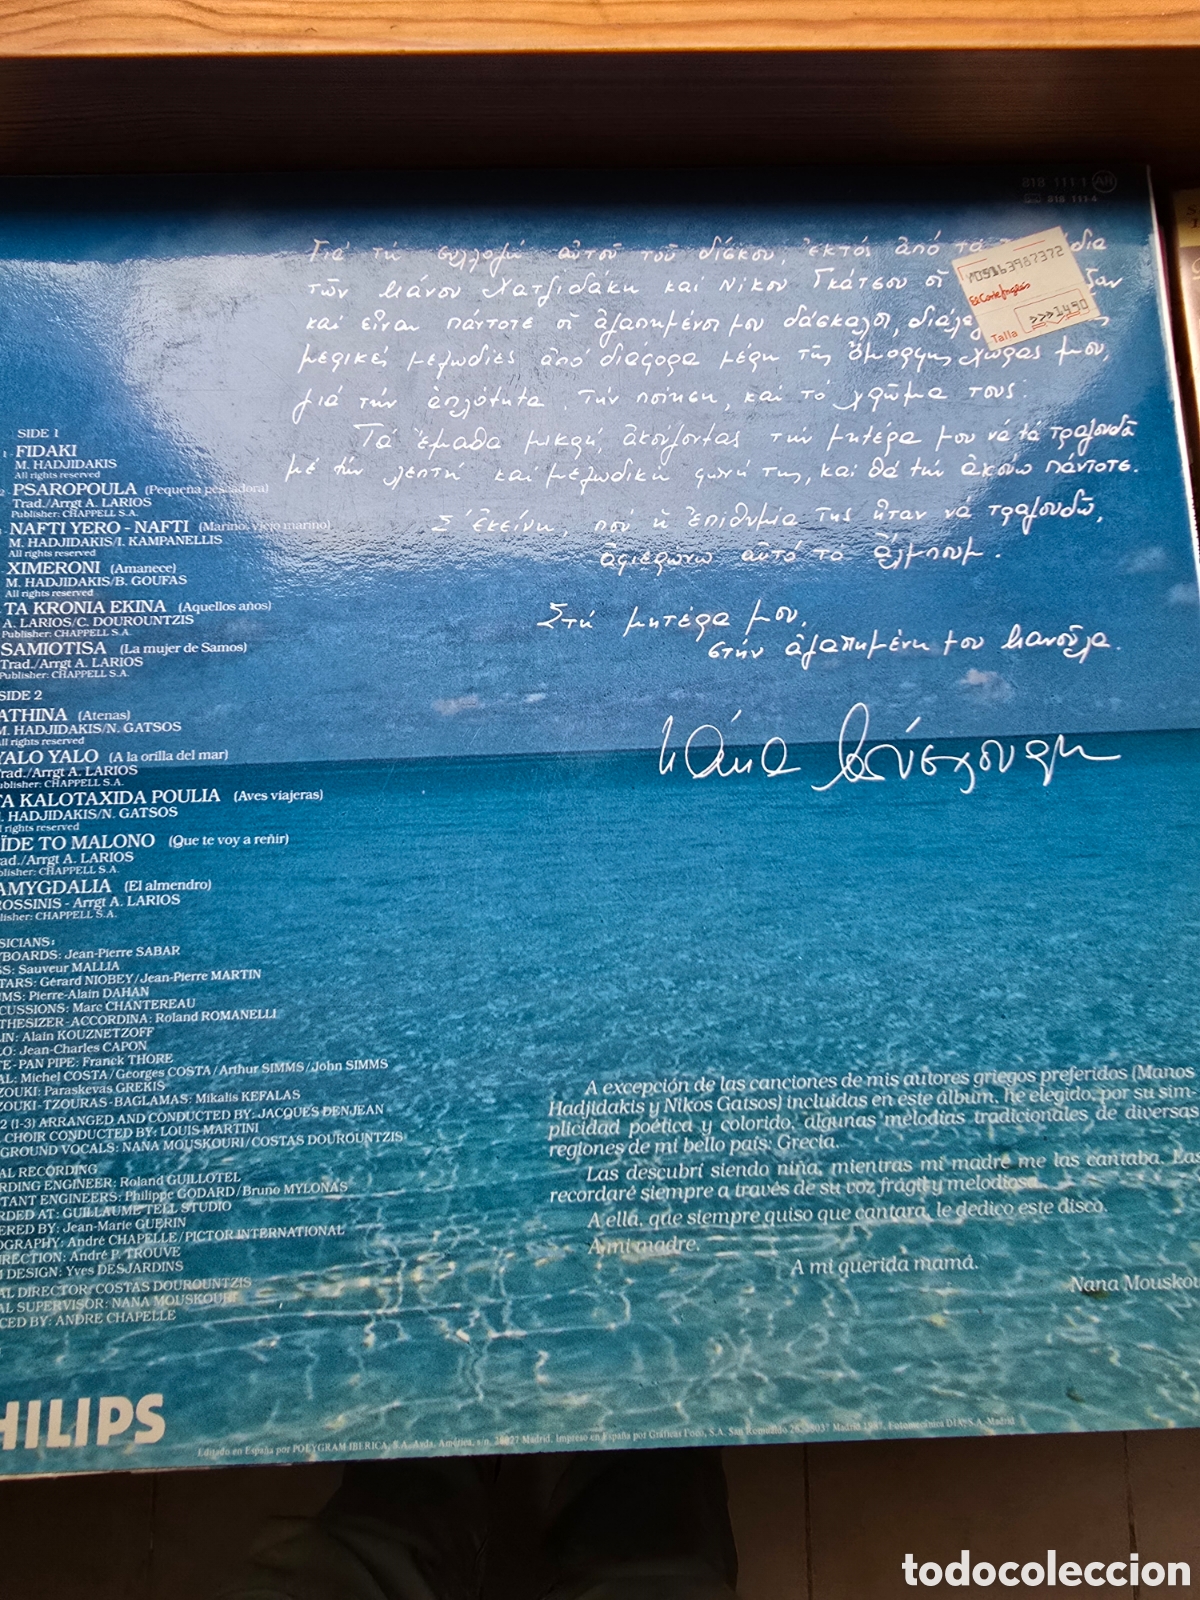 818 111-1 AR
818 111-4
Γιά τή συλλογή αὐτοῦ τοῦ δίσκου, ἐκτός ἀπό τά
τῶν Μάνου Χατζιδάκη καί Νίκου Γκάτσου
καί εἶναι πάντοτε οἱ ἀγαπημένοι μου δάσκαλοι,
μερικές μελωδίες ἀπό διάφορα μέρη τῆς ὄμορφης χώρας μου,
γιά τήν ἁπλότητα, τήν ποίηση, καί τό χρῶμα τους.
Τά ἔμαθα μικρή, ἀκούγοντας τήν μητέρα μου νά τά τραγουδᾶ
μέ τήν λεπτή καί μελωδική φωνή της, καί θά τήν ἀκούω πάντοτε.
Σ' ἐκείνη, πού ἡ ἐπιθυμία της ἦταν νά τραγουδῶ,
ἀφιερώνω αὐτό τό ἄλμπουμ.
Στή μητέρα μου,
στήν ἀγαπημένη μου Μανούλα.
Νάνα Μούσχουρη
Y09163987372
El Corte Inglés
Talla >>>1490
SIDE 1
FIDAKI
M. HADJIDAKIS
All rights reserved
PSAROPOULA (Pequeña pescadora)
Trad./Arrgt A. LARIOS
Publisher: CHAPPELL S.A.
NAFTI YERO - NAFTI (Marino, viejo marino)
M. HADJIDAKIS/I. KAMPANELLIS
All rights reserved
XIMERONI (Amanece)
M. HADJIDAKIS/B. GOUFAS
All rights reserved
TA KRONIA EKINA (Aquellos años)
A. LARIOS/C. DOUROUNTZIS
Publisher: CHAPPELL S.A.
SAMIOTISA (La mujer de Samos)
Trad./Arrgt A. LARIOS
Publisher: CHAPPELL S.A.
SIDE 2
ATHINA (Atenas)
M. HADJIDAKIS/N. GATSOS
All rights reserved
YALO YALO (A la orilla del mar)
Trad./Arrgt A. LARIOS
Publisher: CHAPPELL S.A.
TA KALOTAXIDA POULIA (Aves viajeras)
. HADJIDAKIS/N. GATSOS
l rights reserved
ÏDE TO MALONO (Que te voy a reñir)
ad./Arrgt A. LARIOS
blisher: CHAPPELL S.A.
AMYGDALIA (El almendro)
ROSSINIS - Arrgt A. LARIOS
lisher: CHAPPELL S.A.
SICIANS:
YBOARDS: Jean-Pierre SABAR
SS: Sauveur MALLIA
TARS: Gérard NIOBEY/Jean-Pierre MARTIN
MS: Pierre-Alain DAHAN
CUSSIONS: Marc CHANTEREAU
THESIZER-ACCORDINA: Roland ROMANELLI
LIN: Alain KOUZNETZOFF
LO: Jean-Charles CAPON
TE-PAN PIPE: Franck THORE
AL: Michel COSTA/Georges COSTA/Arthur SIMMS/John SIMMS
ZOUKI: Paraskevas GREKIS
ZOUKI-TZOURAS-BAGLAMAS: Mikalis KEFALAS
2 (1-3) ARRANGED AND CONDUCTED BY: JACQUES DENJEAN
CHOIR CONDUCTED BY: LOUIS MARTINI
GROUND VOCALS: NANA MOUSKOURI/COSTAS DOUROUNTZIS
AL RECORDING
RDING ENGINEER: Roland GUILLOTEL
TANT ENGINEERS: Philippe GODARD/Bruno MYLONAS
RDED AT: GUILLAUME TELL STUDIO
ERED BY: Jean-Marie GUERIN
OGRAPHY: André CHAPELLE/PICTOR INTERNATIONAL
IRECTION: André P. TROUVE
M DESIGN: Yves DESJARDINS
AL DIRECTOR: COSTAS DOUROUNTZIS
AL SUPERVISOR: NANA MOUSKOURI
CED BY: ANDRE CHAPELLE
A excepción de las canciones de mis autores griegos preferidos (Manos
Hadjidakis y Nikos Gatsos) incluidas en este álbum, he elegido, por su sim-
plicidad poética y colorido, algunas melodías tradicionales de diversas
regiones de mi bello país: Grecia.
Las descubrí siendo niña, mientras mi madre me las cantaba. Las
recordaré siempre a través de su voz frágil y melodiosa.
A ella, que siempre quiso que cantara, le dedico este disco.
A mi madre.
A mi querida mamá.
Nana Mouskou
HILIPS
Editado en España por POLYGRAM IBERICA, S.A. Avda. América, s/n. 28027 Madrid. Impreso en España por Gráficas Foco, S.A. San Romualdo 26. 28037 Madrid 1987. Fotomecánica DIA, S.A. Madrid
todocoleccion